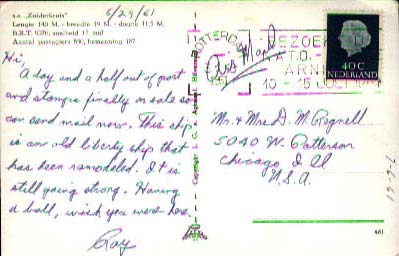 5/29/61
s.s. „Zuiderkruis"
Lengte 140 M. - breedte 19 M. - diepte 11.5 M.
B.R.T. 9376, snelheid 17 mijl
Aantal passagiers 800, bemanning 187
Hi,
A day and a half out of port
and stamps finally on sale so
can send mail now. This ship
is an old liberty ship that
has been remodeled. It is
still going strong. Having
a ball, wish you were here.
Ray
Copyright
ROTTERDAM
1961
BEZOEK
N.A.T.O.
ARNHEM
10 - 15 JULI 1961
40 C
NEDERLAND
Mr. & Mrs. D. M. Regnell
5040 W. Patterson
Chicago, Ill
U.S.A.
481